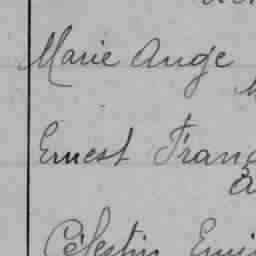 Marie Ange
Ernest Franç
Célestin Emi